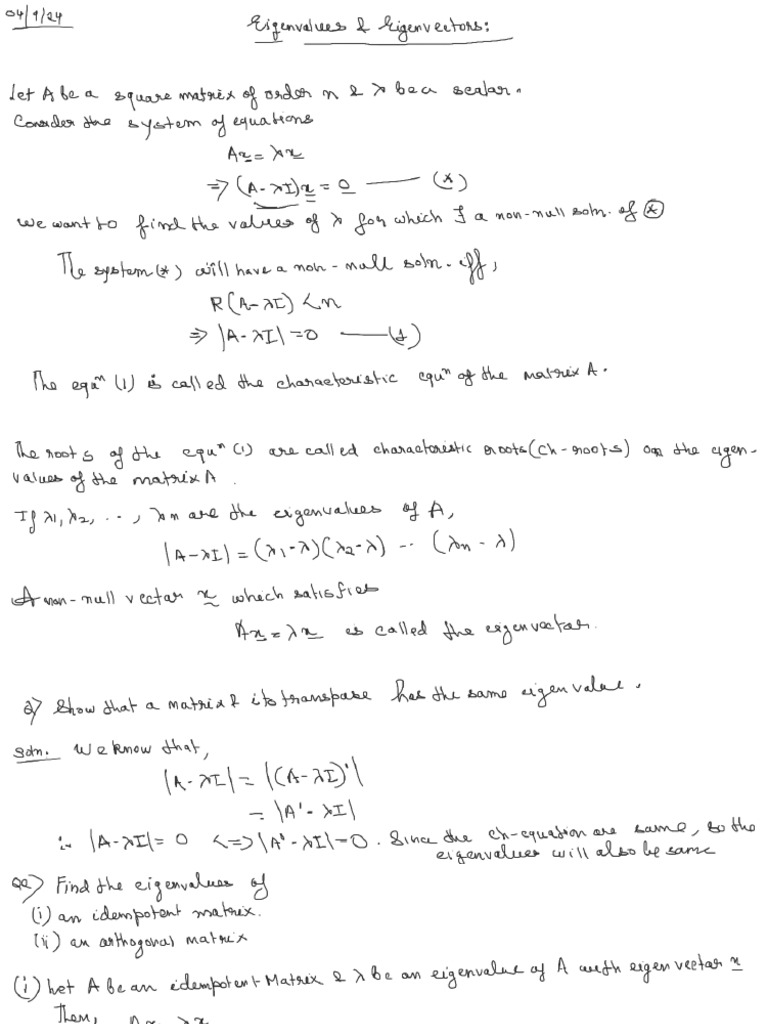 04/9/24
Eigenvalues & Eigenvectors:
Let A be a square matrix of order n & λ be a scalar.
Consider the system of equations
Ax = λx
⇒ (A-λI)x = 0 —— (*)
We want to find the values of λ for which ∃ a non-null soln. of (*)
The system (*) will have a non-null soln. iff,
R(A-λI) < n
⇒ |A-λI| = 0 —— (1)
The equⁿ (1) is called the characteristic equⁿ of the matrix A.
The roots of the equⁿ (1) are called characteristic roots (ch-roots) or the eigen-
values of the matrix A.
If λ1, λ2, ..., λn are the eigenvalues of A,
|A-λI| = (λ1-λ)(λ2-λ) ... (λn-λ)
A non-null vector x which satisfies
Ax = λx is called the eigenvector.
Q) Show that a matrix & its transpose has the same eigenvalue.
Soln. We know that,
|A-λI| = |(A-λI)'|
= |A'-λI|
∴ |A-λI| = 0 <=> |A'-λI| = 0. Since the ch-equation are same, so the
eigenvalues will also be same
Q2) Find the eigenvalues of
(i) an idempotent matrix.
(ii) an orthogonal matrix
(i) Let A be an idempotent Matrix & λ be an eigenvalue of A with eigen vector x
Then, Ax = λx